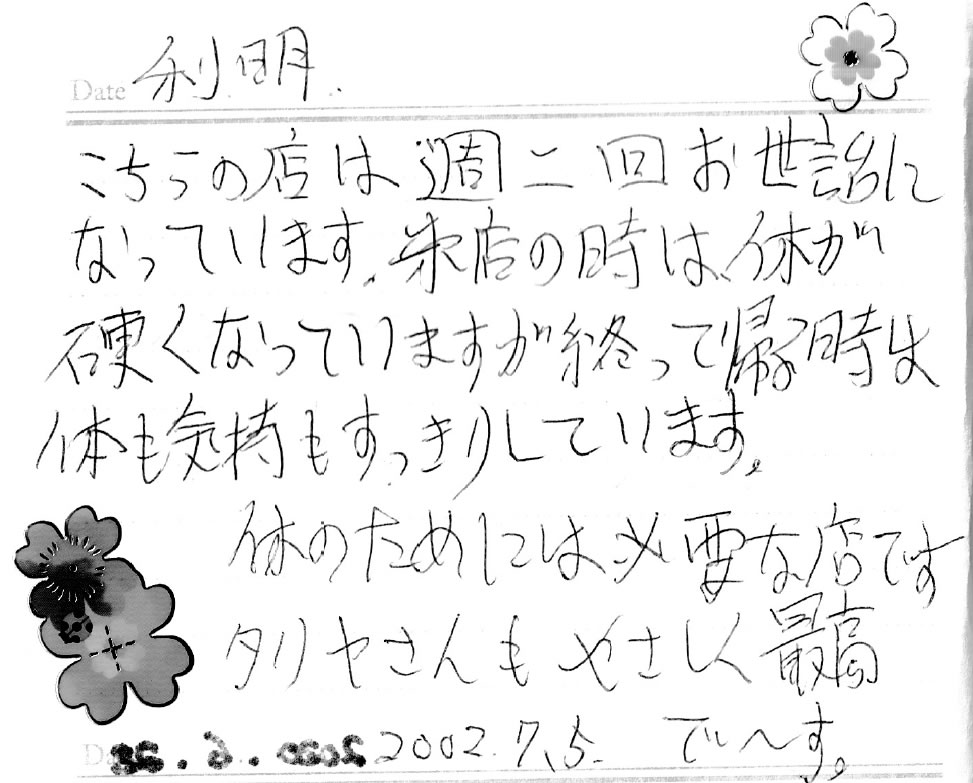 Date 利明.
こちらの店は週二回お世話に
なっています.来店の時は、体が
硬くなっていますが終って帰る時は
体も気持もすっきりしています。
体のためには必要な店です
タリヤさんもやさしく最高
2002.7.5. で〜す。